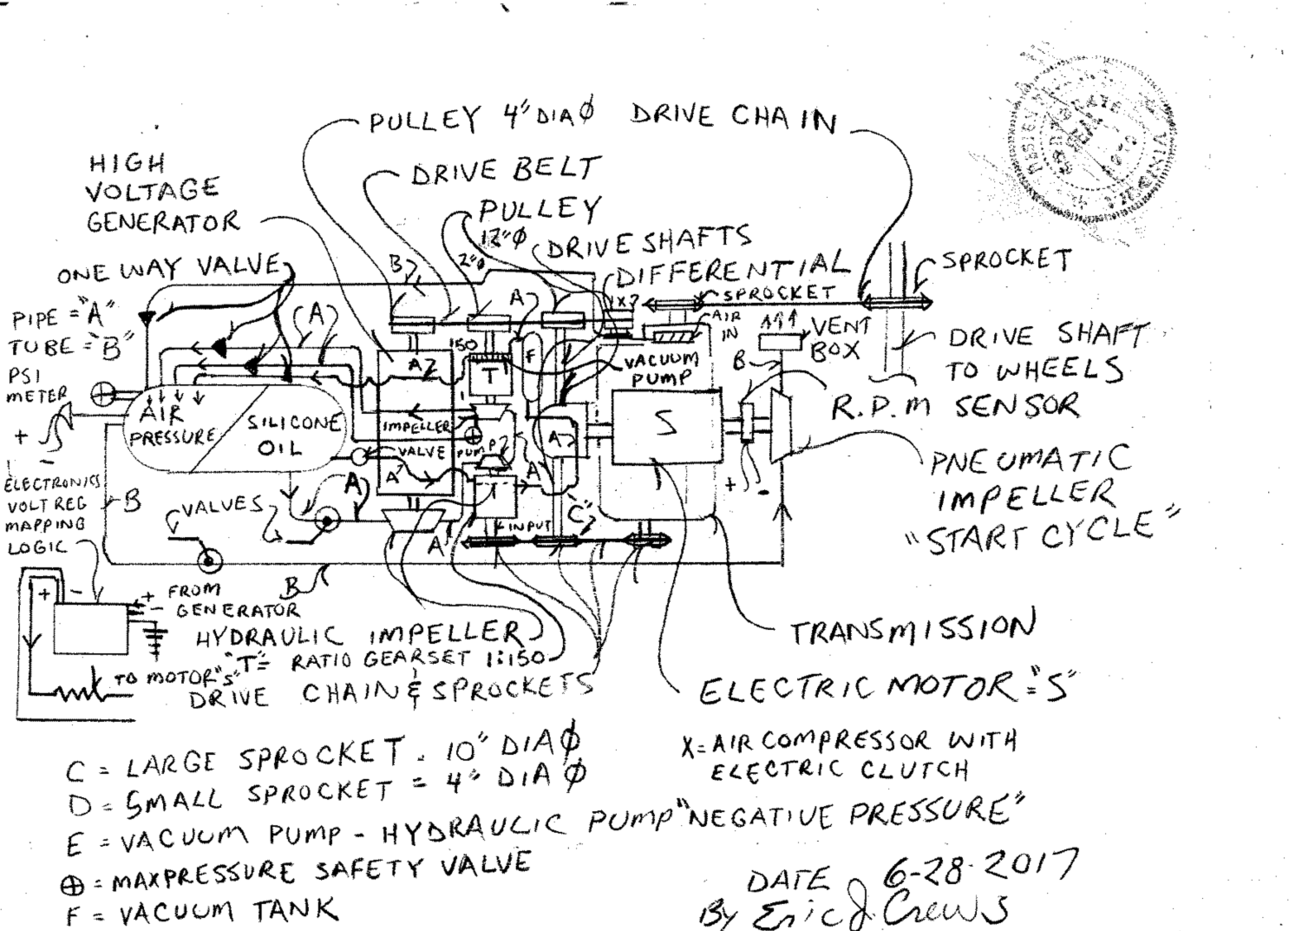 PULLEY 4" DIA Ø DRIVE CHAIN
HIGH
VOLTAGE
GENERATOR
DRIVE BELT
PULLEY
12"Ø
2"Ø
DRIVE SHAFTS
DIFFERENTIAL
SPROCKET
SPROCKET
ONE WAY VALVE
B
A
A
X?
AIR
IN
VENT
BOX
PIPE = "A"
TUBE = "B"
PSI
METER
DRIVE SHAFT
TO WHEELS
R.P.M SENSOR
150
F
T
VACUUM
PUMP
B
A
AIR
PRESSURE
SILICONE
OIL
IMPELLER
PUMP
VALVE
A
A
A
S
+
-
+ -
PNEUMATIC
IMPELLER
"START CYCLE"
ELECTRONICS
VOLT REG
MAPPING
LOGIC
B
VALVES
A
A
T
INPUT
"C"
B
+ -
+
-
FROM
GENERATOR
HYDRAULIC IMPELLER
"T" = RATIO GEARSET 1:150
TO MOTOR "S"
DRIVE CHAIN & SPROCKETS
TRANSMISSION
ELECTRIC MOTOR = "S"
X = AIR COMPRESSOR WITH
ELECTRIC CLUTCH
C = LARGE SPROCKET = 10" DIA Ø
D = SMALL SPROCKET = 4" DIA Ø
E = VACUUM PUMP - HYDRAULIC PUMP "NEGATIVE PRESSURE"
⊕ = MAXPRESSURE SAFETY VALVE
F = VACUUM TANK
DATE 6-28-2017
By Eric J. Crews